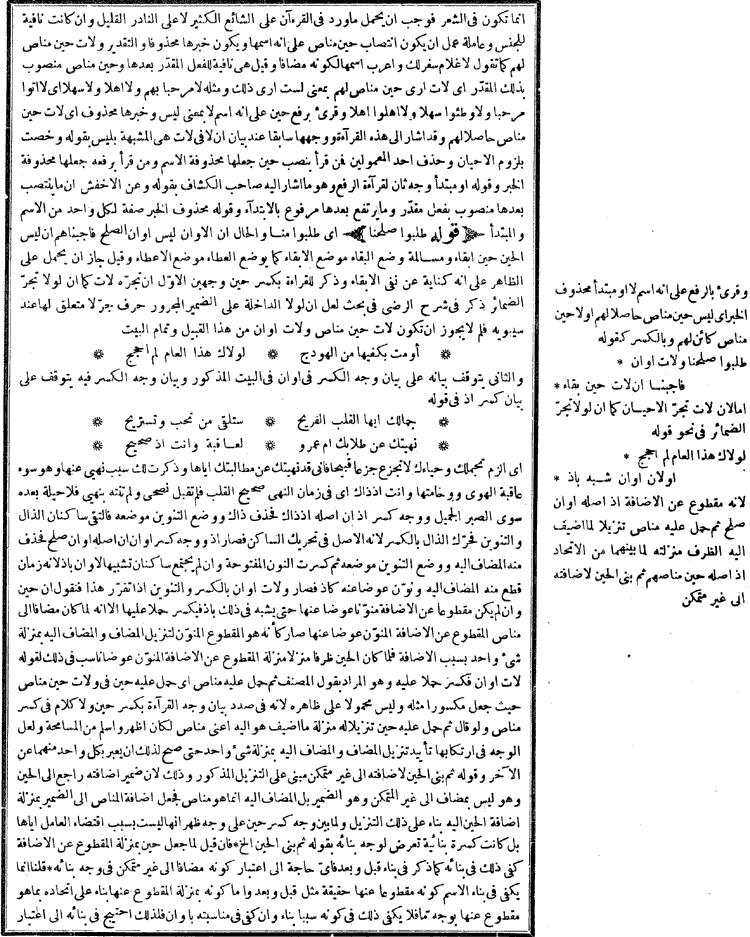 انما تكون فى الشعر فوجب ان يحمل ماورد فى القرءآن على الشائع الكثير لا على النادر القليل وان كانت نافية
للجنس وعاملة عمل ان يكون انتصاب حين مناص على انه اسمها ويكون خبرها محذوفا والتقدير ولات حين مناص
لهم كما تقول لاغلام سفرلك واعرب اسمها لكونه مضافا وقيل هى نافية للفعل المقدّر بعدها وحين مناص منصوب
بذلك المقدّر اى لات ارى حين مناص لهم بمعنى لست ارى ذلك ومثله لامرحبا بهم ولا اهلا ولا سهلا اى لا اتوا
مرحبا ولا وطئوا سهلا ولا اهلوا اهلا وقرئ برفع حين على انه اسم لا بمعنى ليس وخبرها محذوف اى لات حين
مناص حاصلا لهم وقد اشار الى هذه القرآءة ووجهها سابقا عند بيان ان لا فى لات هى المشبهة بليس بقوله وخصت
بلزوم الاحيان وحذف احد المعمولين فمن قرأ بنصب حين جعلها محذوفة الاسم ومن قرأ برفعه جعلها محذوفة
الخبر وقوله اومبتدأ وجه ثان لقرآءة الرفع وهو ما اشار اليه صاحب الكشاف بقوله وعن الاخفش ان ماينتصب
بعدها منصوب بفعل مقدّر ومايرتفع بعدها مرفوع بالابتدآء وقوله محذوف الخبر صفة لكل واحد من الاسم
والمبتدأ ﴿ قوله طلبوا صلحنا ﴾ اى طلبوا منا والحال ان الاوان ليس اوان الصلح فاجبناهم ان ليس
الحين حين ابقاء ومسالمة وضع البقاء موضع الابقاء كما يوضع العطاء موضع الاعطاء وقيل جاز ان يحمل على
الظاهر على انه كناية عن نفى الابقاء وذكر للقراءة بكسر حين وجهين الاوّل ان تجرّه لات كما ان لولا تجرّ
الضمائر ذكر فى شرح الرضى فى بحث لعل ان لولا الداخلة على الضمير المجرور حرف جرّ لا متعلق لها عند
سيبويه فلم لايجوز ان تكون لات حين مناص ولات اوان من هذا القبيل وتمام البيت
* أومت بكفيها من الهودج * لولاك هذا العام لم احجج *
والثانى يتوقف بيانه على بيان وجه الكسر فى اوان فى البيت المذكور وبيان وجه الكسر فيه يتوقف على
بيان كسر اذ فى قوله
* جمالك ايها القلب القريح * ستلقى من تحب وتستريح *
* نهيتك عن طلابك ام عمرو * لعاقبة وانت اذ صحيح *
اى الزم تجملك وحياءك لاتجزع جزعا قبيحا فانى قد نهيتك عن مطالبتك اياها وذكرت لك سبب نهيى عنها وهو سوء
عاقبة الهوى ووخامتها وانت اذذاك اى فى زمان النهى صحيح القلب فلم تقبل نصحى ولم تنته بنهيى فلا حيلة بعده
سوى الصبر الجميل ووجه كسر اذ ان اصله اذذاك فحذف ذاك ووضع التنوين موضعه فالتقى ساكنان الذال
والتنوين فحرّك الذال بالكسر لانه الاصل فى تحريك الساكن فصار اذ ووجه كسر اوان ان اصله اوان صلح فحذف
منه المضاف اليه ووضع التنوين موضعه ثم كسرت النون المفتوحة وان لم يجتمع ساكنان تشبيها لاوان باذ لانه زمان
قطع منه المضاف اليه ونوّن عوضا عنه كاذ فصار ولات اوان بالكسر والتنوين اذا تقرّر هذا فنقول ان حين
وان لم يكن مقطوعا عن الاضافة منوّنا عوضا عنها حتى يشبه فى ذلك باذ فيكسر حملا عليها الا انه لما كان مضافا الى
مناص المقطوع عن الاضافة المنوّن عوضا عنها صار كأنه هو المقطوع المنوّن لتنزيل المضاف والمضاف اليه بمنزلة
شئ واحد بسبب الاضافة فلما كان الحين ظرفا منزلا منزلة المقطوع عن الاضافة المنوّن عوضا ناسب فى ذلك لقوله
لات اوان فكسر حملا عليه وهو المراد بقول المصنف ثم حمل عليه مناص اى حمل عليه حين فى ولات حين مناص
حيث جعل مكسورا مثله وليس محمولا على ظاهره لانه فى صدد بيان وجه القرآءة بكسر حين ولا كلام فى كسر
مناص ولو قال ثم حمل عليه حين تنزيلا له منزلة ما اضيف هو اليه اعنى مناص لكان اظهر واسلم من المسامحة ولعل
الوجه فى ارتكابها تأييد تنزيل المضاف و المضاف اليه بمنزلة شئ واحد حتى صح لذلك ان يعبر بكل واحد منهما عن
الآخر وقوله ثم بنى الحين لاضافته الى غير متمكن مبنى على التنزيل المذكور وذلك لان ضمير اضافته راجع الى الحين
وهو ليس بمضاف الى غير المتمكن وهو الضمير بل المضاف اليه انما هو مناص فجعل اضافة المناص الى الضمير بمنزلة
اضافة الحين اليه بناء على ذلك التنزيل ولما بين وجه كسر حين على وجه ظهر انها ليست بسبب اقتضاء العامل اياها
بل كانت كسرة بنائية تعرض لوجه بنائه بقوله ثم بنى الحين الخ * فان قيل لما جعل حين بمنزلة المقطوع عن الاضافة
كفى ذلك فى بنائه كما ذكر فى بناء قبل وبعد فاىّ حاجة الى اعتبار كونه مضافا الى غير متمكن فى وجه بنائه * قلنا انما
يكفى فى بناء الاسم كونه مقطوعا عنها حقيقة مثل قبل وبعد واما كونه بمنزلة المقطوع عنها بناء على اتحاده بماهو
مقطوع عنها بوجه تمّا فلا يكفى ذلك فى كونه سببا بناء وان كفى فى مناسبته باوان فلذلك احتيج فى بنائه الى اعتبار
وقرئ بالرفع على انه اسم لا اومبتدأ محذوف
الخبر اى ليس حين مناص حاصلا لهم اولا حين
مناص كائن لهم وبالكسر كقوله
طلبوا صلحنا ولات اوان *
فاجبنا ان لات حين بقاء *
اما لان لات تجرّ الاحيان كما ان لولا تجرّ
الضمائر فى نحو قوله
لولاك هذا العام لم احجج *
اولان اوان شبه باذ *
لانه مقطوع عن الاضافة اذ اصله اوان
صلح ثم حمل عليه مناص تنزيلا لما اضيف
اليه الظرف منزلته لما بينهما من الاتحاد
اذ اصله حين مناصهم ثم بنى الحين لاضافته
الى غير متمكن